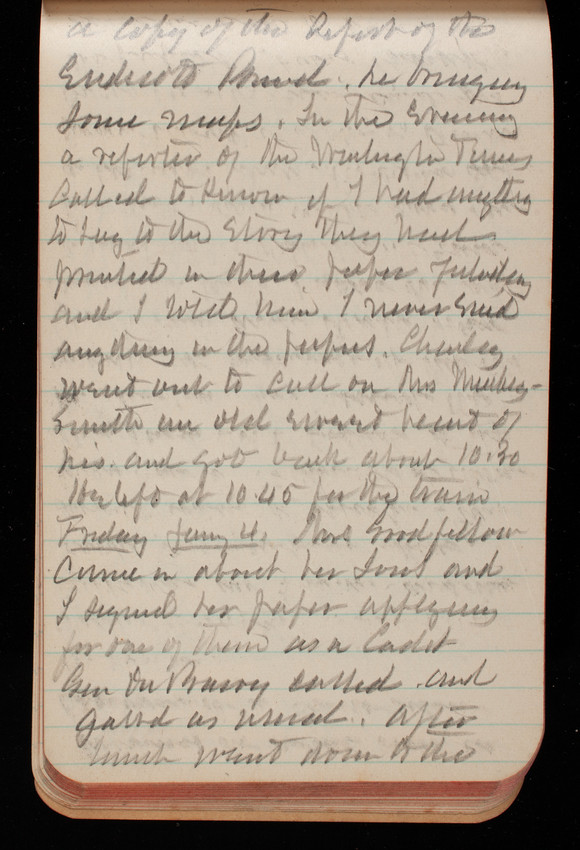 a copy of the Report of the
Endicott Board. he bringing
some maps. In the Evening
a reporter of the Washington Times
called to know if I had anything
to say to the Story they had
printed in their paper
and I told him I never said
anything in the papers. Charley
went out to call on Mrs
Smith an old sweet heart of
his. and got back about 10.30
He left at 10.45 for the train
Friday Jany 4. Mrs Goodfellow
came in about her sons and
I signed her paper applying
for one of them as a Cadet
Gen Du Barry called. and
as usual. After
lunch went down to the